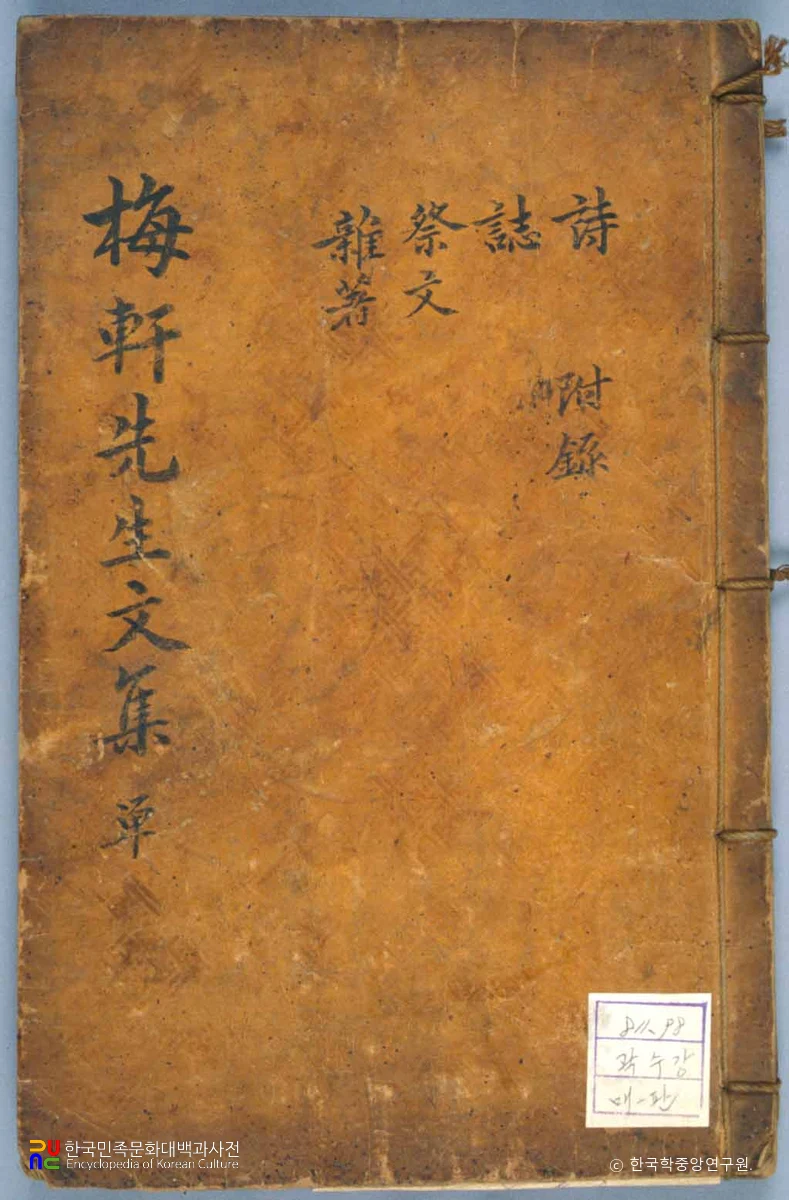 詩
附錄
誌
祭文
雜著
梅軒先生文集 单
811.98
곽수강
매-판
한국민족문화대백과사전
Encyclopedia of Korean Culture
© 한국학중앙연구원